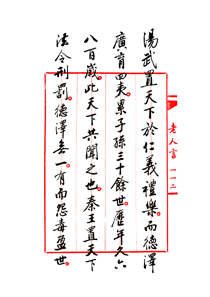 老人言 一一二
湯武置天下於仁義禮樂。而德澤
廣育四夷。累子孫三十餘世。歷年久六
八百歲此天下共聞之也。秦王置天下
法令刑罰。德澤無一有而怨毒盈世。